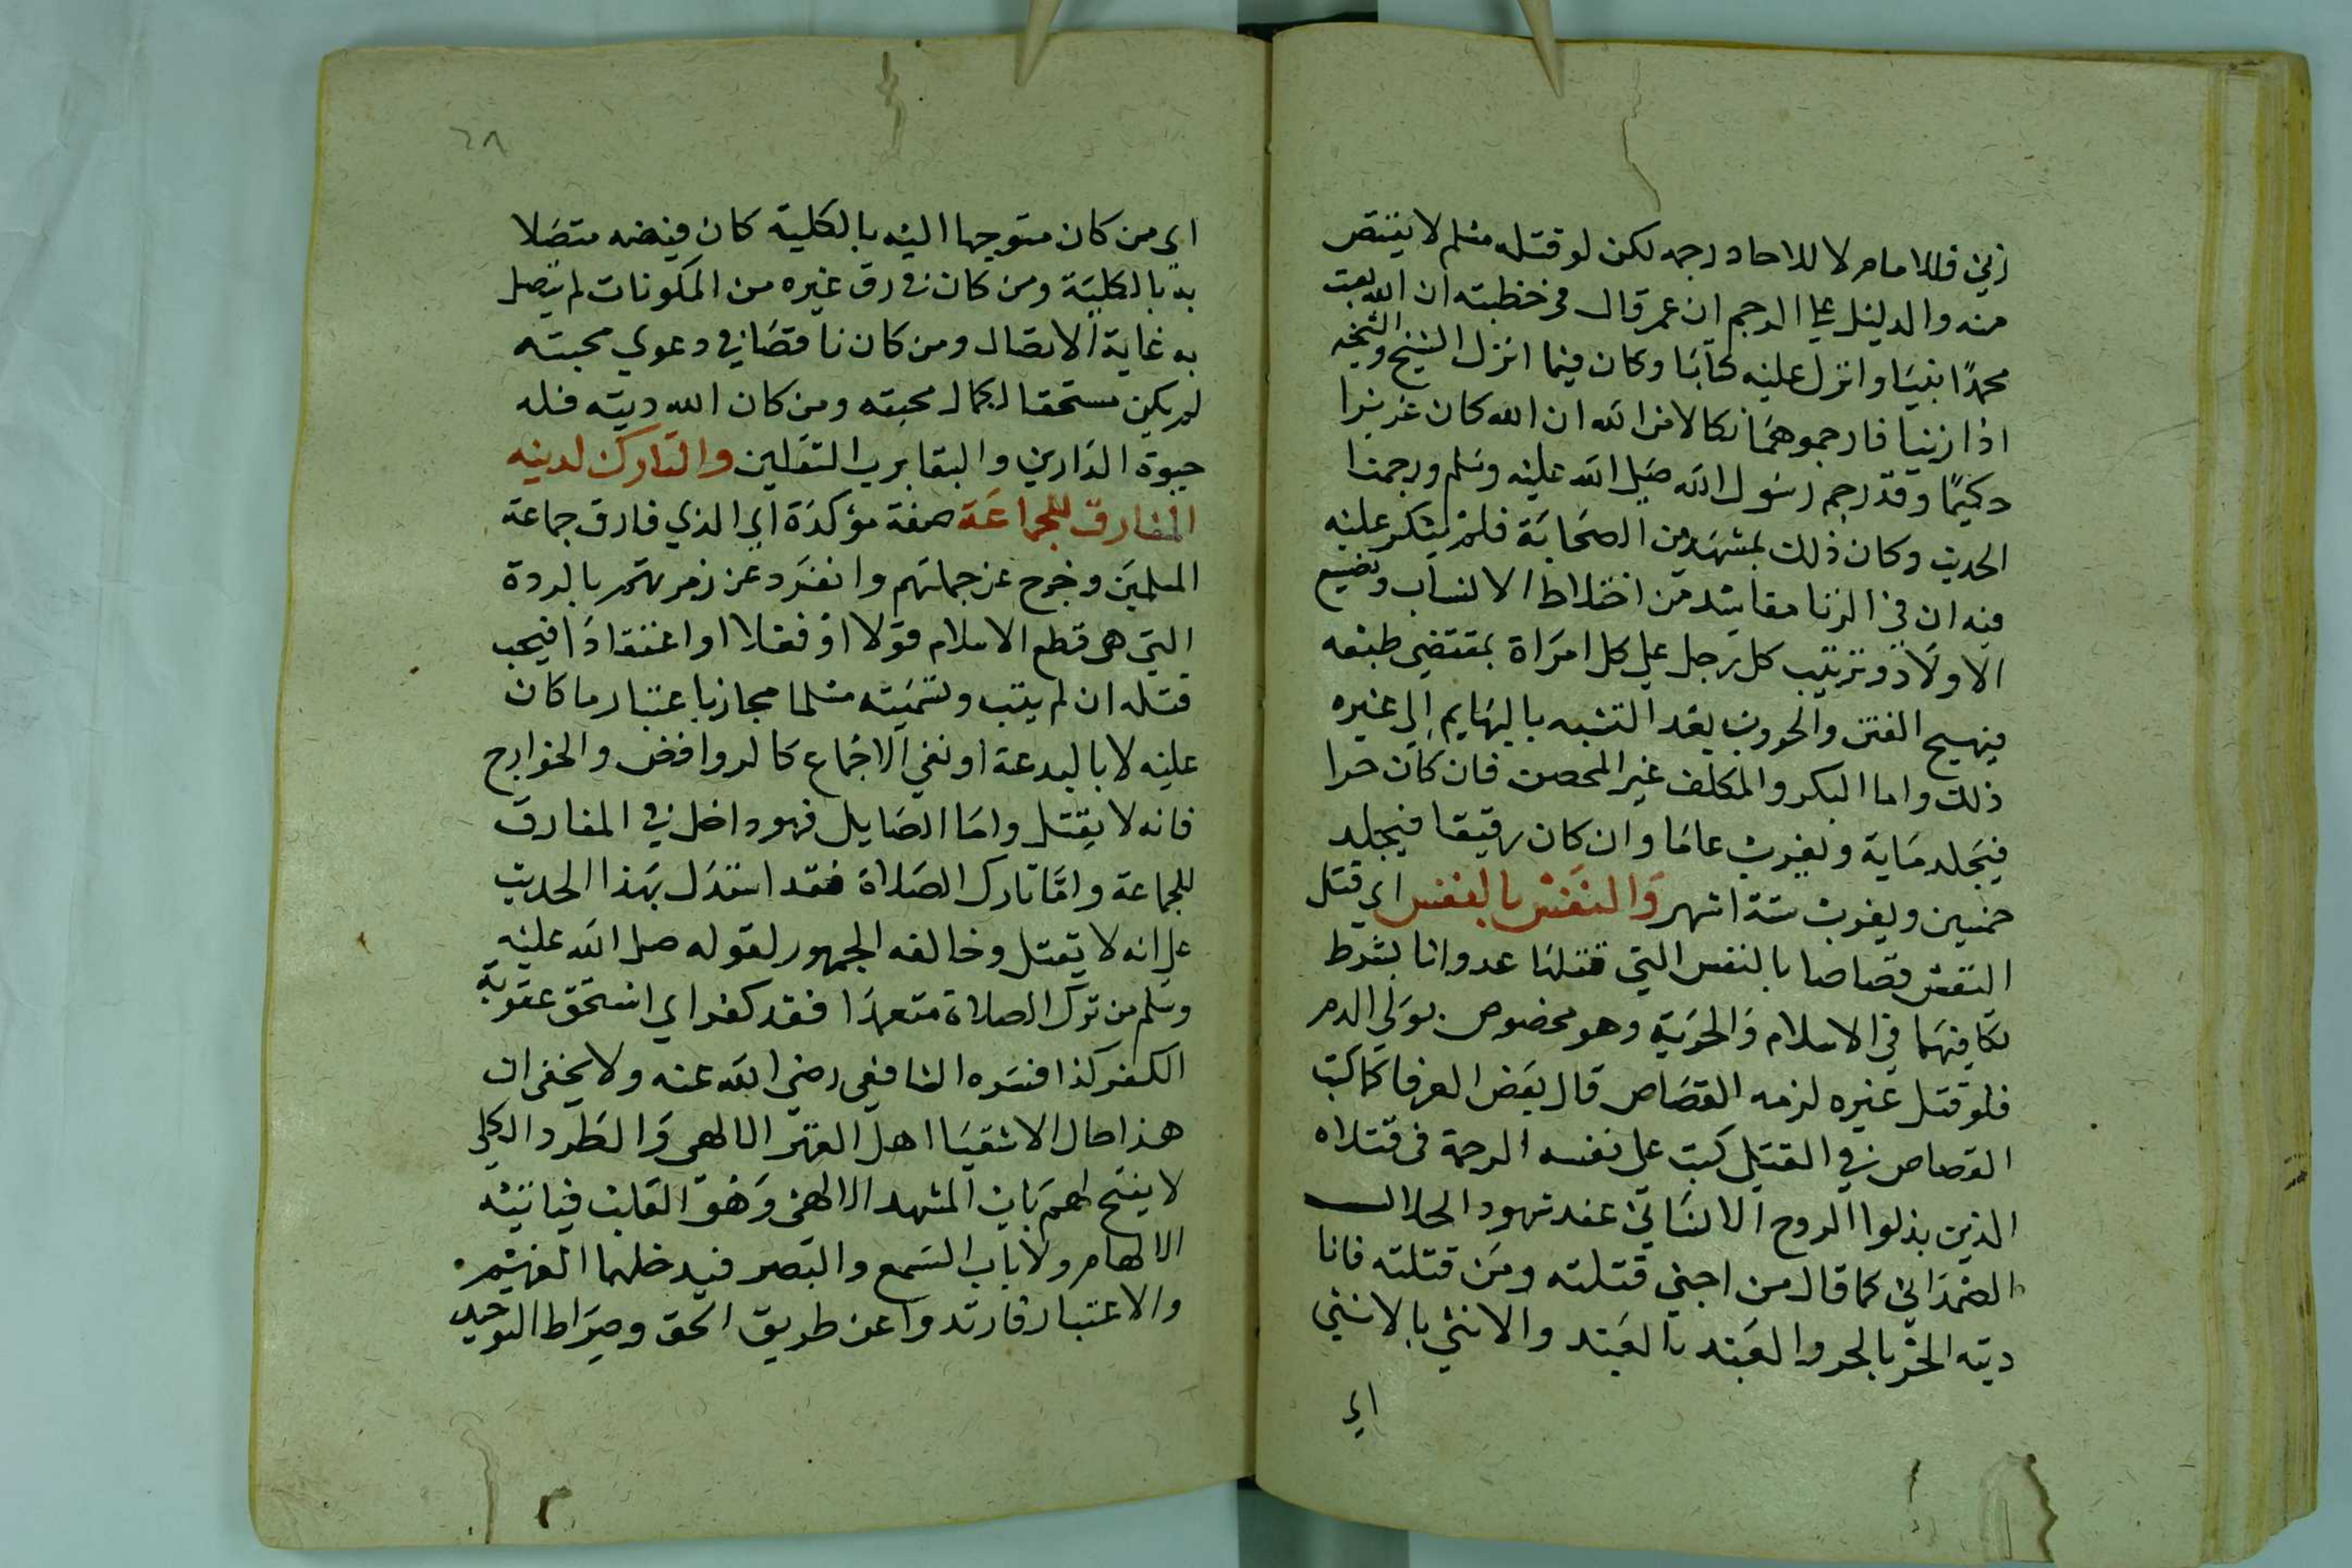 زني فللامام لا للاحاد رجمه لكن لو قتله مسلم لا يقتص
منه والدليل علي الرجم ان عمر قال في خطبته ان الله بعث
محمدًا نبيا وانزل عليه كتابا وكان فيما انزل الشيخ والشيخه
اذا زنيا فارجموهما نكالا من الله ان الله كان عزيزا
حكيمًا وقد رجم رسول الله صلي الله عليه وسلم ورجمنا
الحديث وكان ذلك بمشهد من الصحابة فلم ينكر عليه
فيه ان في الزنا مفاسد من اختلاط الانساب وتضييع
الاولاد وترتيب كل رجل علي كل امراة بمقتضي طبعه
فيهيج الفتن والحروب بعد التشبه بالبهايم الي غيره
ذلك واما البكر والمكلف غير المحصن فان كان حرا
فيجلد ماية ويغرب عاما وان كان رقيقا فيجلد
خمسين ويغرب ستة اشهر والنفس بالنفس اي قتل
النفس قصاصا بالنفس التي قتلها عدوانا بشرط
تكافيهما في الاسلام والحرية وهو مخصوص بولي الدم
فلو قتل غيره لزمه القصاص قال بعض العرفا كما كتب
القصاص في القتيل كتب على نفسه الرحمة في قتلاه
الذين بذلوا الروح الانساني عند شهود الجلال
الصمداني كما قال من احبني قتلته ومن قتلته فانا
ديته الحر بالحر والعبد بالعبد والانثي بالانثي
اي
٢٨
اى من كان متوجها اليه بالكلية كان فيضه متصلا
به بالكلية ومن كان في رق غيره من المكونات لم يتصل
به غاية الاتصال ومن كان ناقصا في دعوي محبته
لم يكن مستحقا لكمال محبته ومن كان الله ديته فله
حيوة الدارين والبقا برب الثقلين والتارك لدينه
المفارق للجماعة صفة مؤكدة اي الذي فارق جماعة
المسلمين وخرج عن جملتهم وانفرد عن زمرتهم بالردة
التي هي قطع الاسلام قولا او فعلا او اعتقادا فيجب
قتله ان لم يتب وتسميته مسلما مجاز باعتبار ما كان
عليه لا بالبدعة او نفي الاجماع كالروافض والخوارج
فانه لا يقتل واما الصايل فهو داخل في المفارق
للجماعة واما تارك الصلاة فقد استدل بهذا الحديث
على انه لا يقتل وخالفه الجمهور لقوله صلى الله عليه
وسلم من ترك الصلاة متعمدا فقد كفر اي استحق عقوبة
الكفر كذا فسره الشافعي رضي الله عنه ولا يخفى ان
هذا حال الاشقيا اهل القهر الالهي والطرد الكلي
لا يفتح لهم باب المشهد الالهى وهو القلب فياتيه
الالهام ولا باب السمع والبصر فيدخلهما الفهم
والاعتبار فارتدوا عن طريق الحق وصراط التوحيد